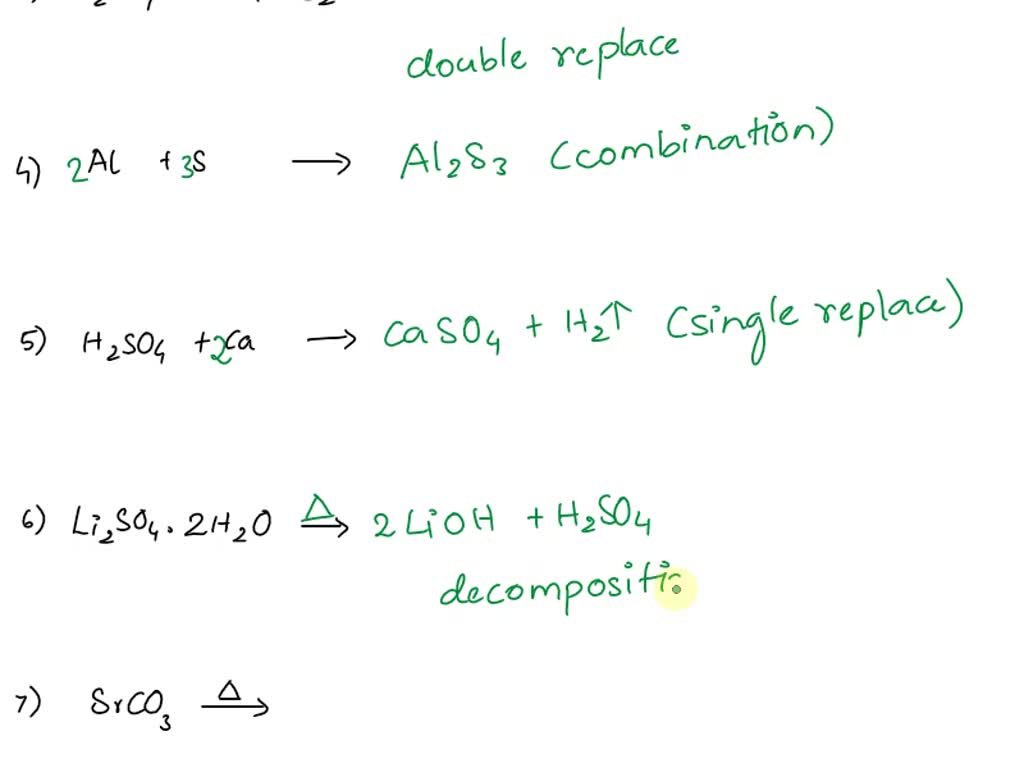 double replace
4) 2Al + 3S → Al₂S₃ (combination)
5) H₂SO₄ + 2Ca → CaSO₄ + H₂↑ (single replace)
6) Li₂SO₄ . 2H₂O △→ 2LiOH + H₂SO₄
decompositi
7) SrCO₃ △→